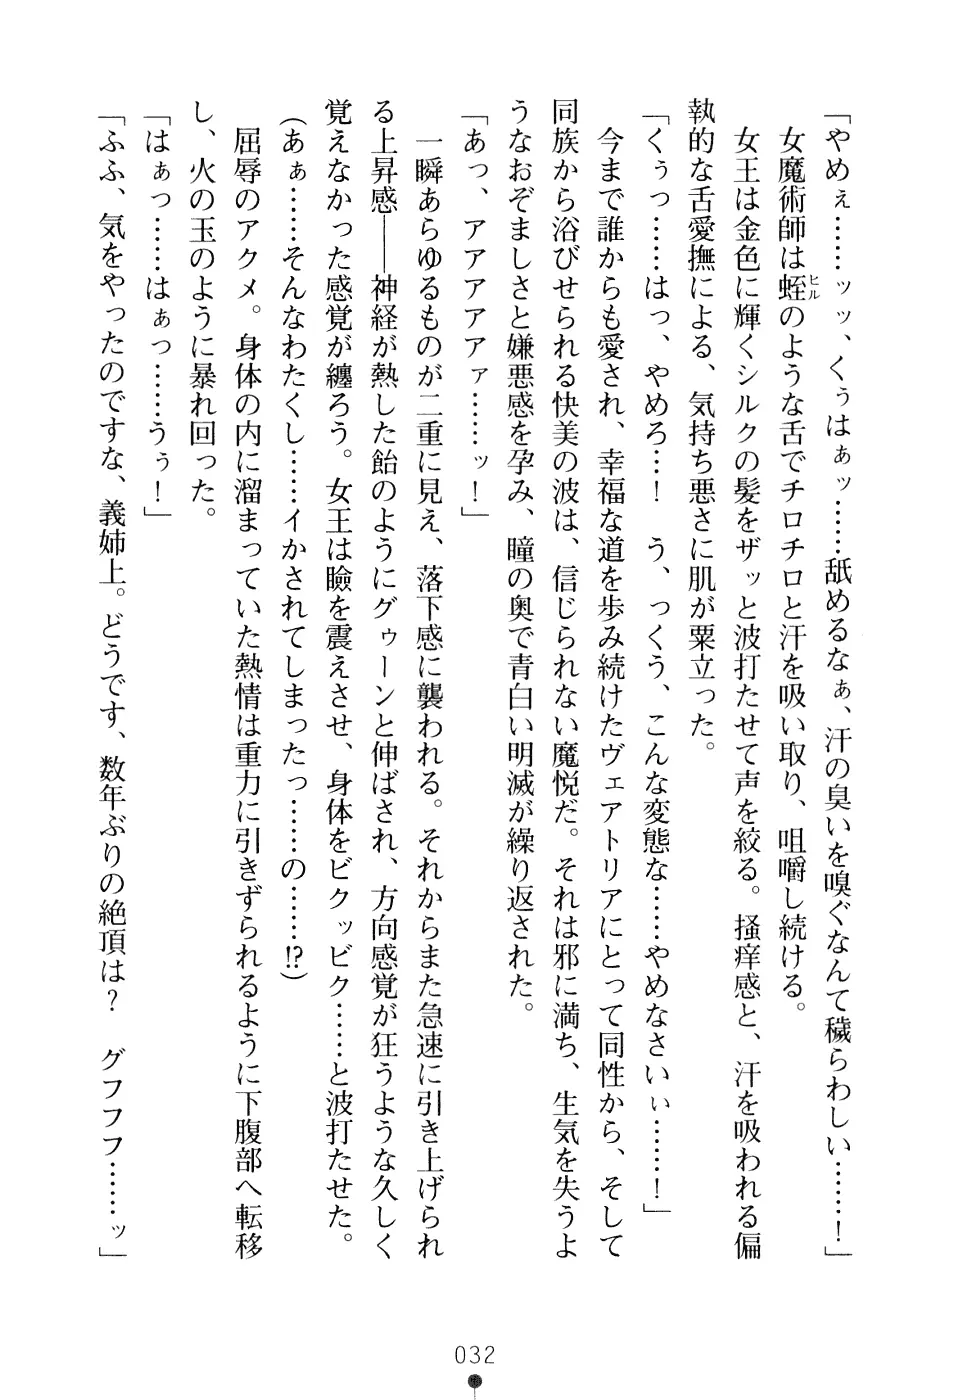 「やめぇ……ッッ、くぅはぁッ……舐めるなぁ、汗の臭いを嗅ぐなんて穢らわしい……！」
女魔術師は蛭のような舌でチロチロと汗を吸い取り、咀嚼し続ける。
ヒル
女王は金色に輝くシルクの髪をザッと波打たせて声を絞る。掻痒感と、汗を吸われる偏
執的な舌愛撫による、気持ち悪さに肌が粟立った。
「くぅっ……はっ、やめろ…！　う、っくう、こんな変態な……やめなさいぃ……！」
今まで誰からも愛され、幸福な道を歩み続けたヴェアトリアにとって同性から、そして
同族から浴びせられる快美の波は、信じられない魔悦だ。それは邪に満ち、生気を失うよ
うなおぞましさと嫌悪感を孕み、瞳の奥で青白い明滅が繰り返された。
「あっ、アアアアァ……ッ！」
一瞬あらゆるものが二重に見え、落下感に襲われる。それからまた急速に引き上げられ
る上昇感――神経が熱した飴のようにグゥーンと伸ばされ、方向感覚が狂うような久しく
覚えなかった感覚が纏ろう。女王は瞼を震えさせ、身体をビクッビク……と波打たせた。
（あぁ……そんなわたくし……イかされてしまったっ……の……⁉）
屈辱のアクメ。身体の内に溜まっていた熱情は重力に引きずられるように下腹部へ転移
し、火の玉のように暴れ回った。
「はぁっ……はぁっ……うぅ！」
「ふふ、気をやったのですな、義姉上。どうです、数年ぶりの絶頂は？　グフフフ……ッ」
032